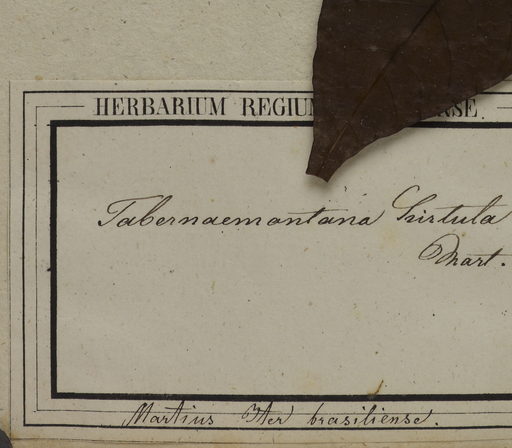 HERBARIUM REGIU
Tabernaemontana hirtula
Mart.
Martius Iter brasiliense.